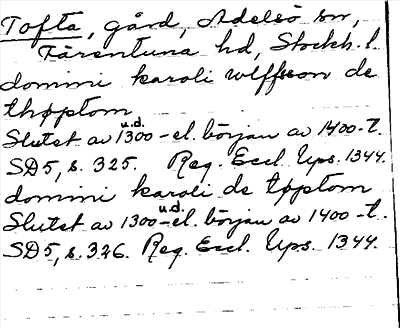 Tofta, gård, Adelsö sn,
Färentuna hd, Stockh. l.
domini karoli wlffsson de
thøptom
u.d.
Slutet av 1300 - el. början av 1400-t.
SD5, s. 325. Reg. Eccl. Ups. 1344.
domini karoli de tøptom
u.d.
Slutet av 1300-el. början av 1400-t.
SD5, s. 326. Reg. Eccl. Ups. 1344.